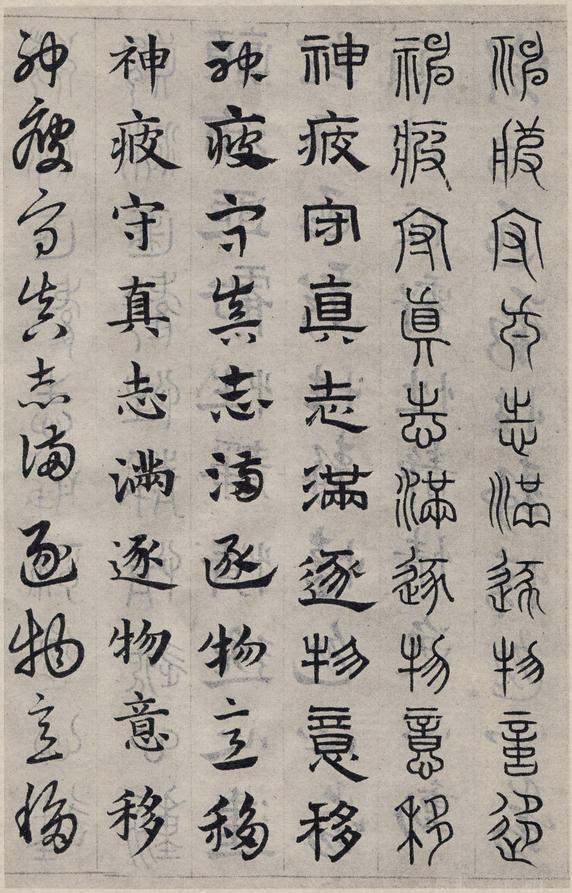 神疲守真志滿逐物意移
神疲守真志滿逐物意移
神疲守真志滿逐物意移
神疲守真志滿逐物意移
神疲守真志滿逐物意移
神疲守真志滿逐物意移